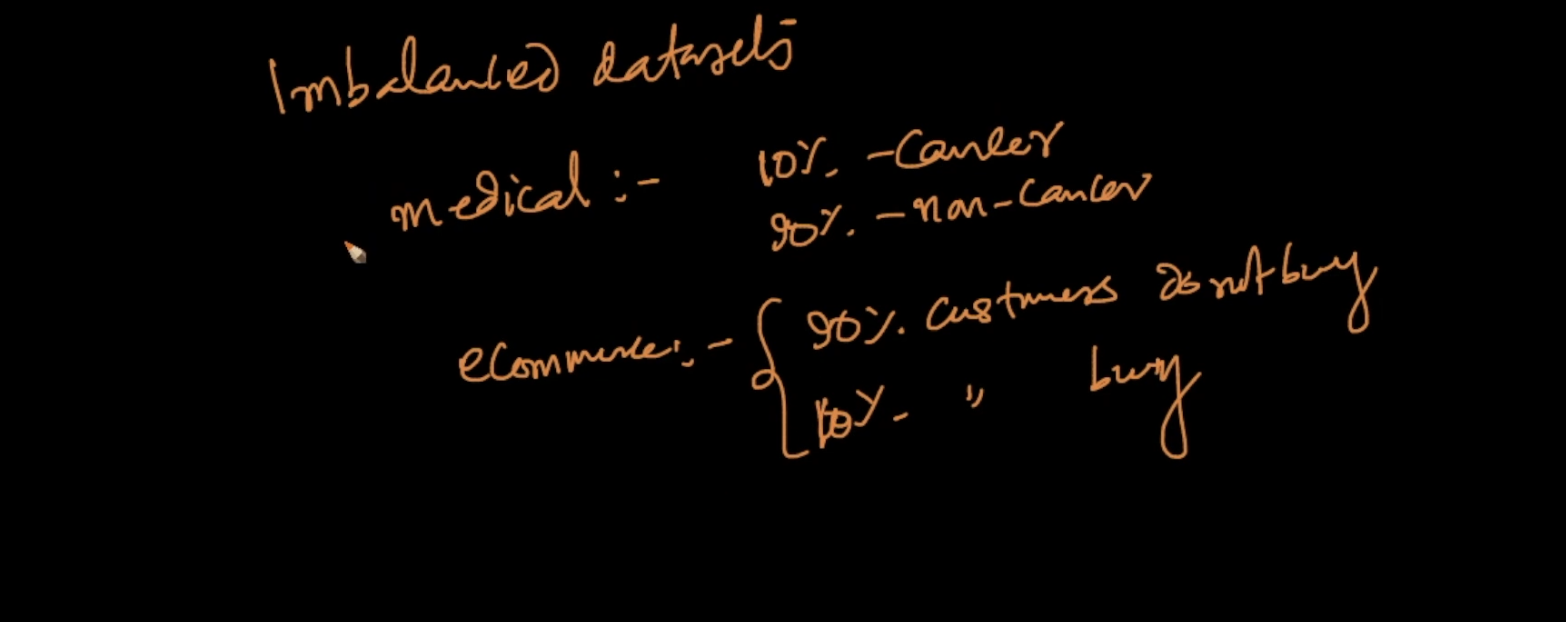 Imbalanced datasets
medical :- 10% - Cancer
90% - non-cancer
ecommerce :- { 90% customers do not buy
10% " buy